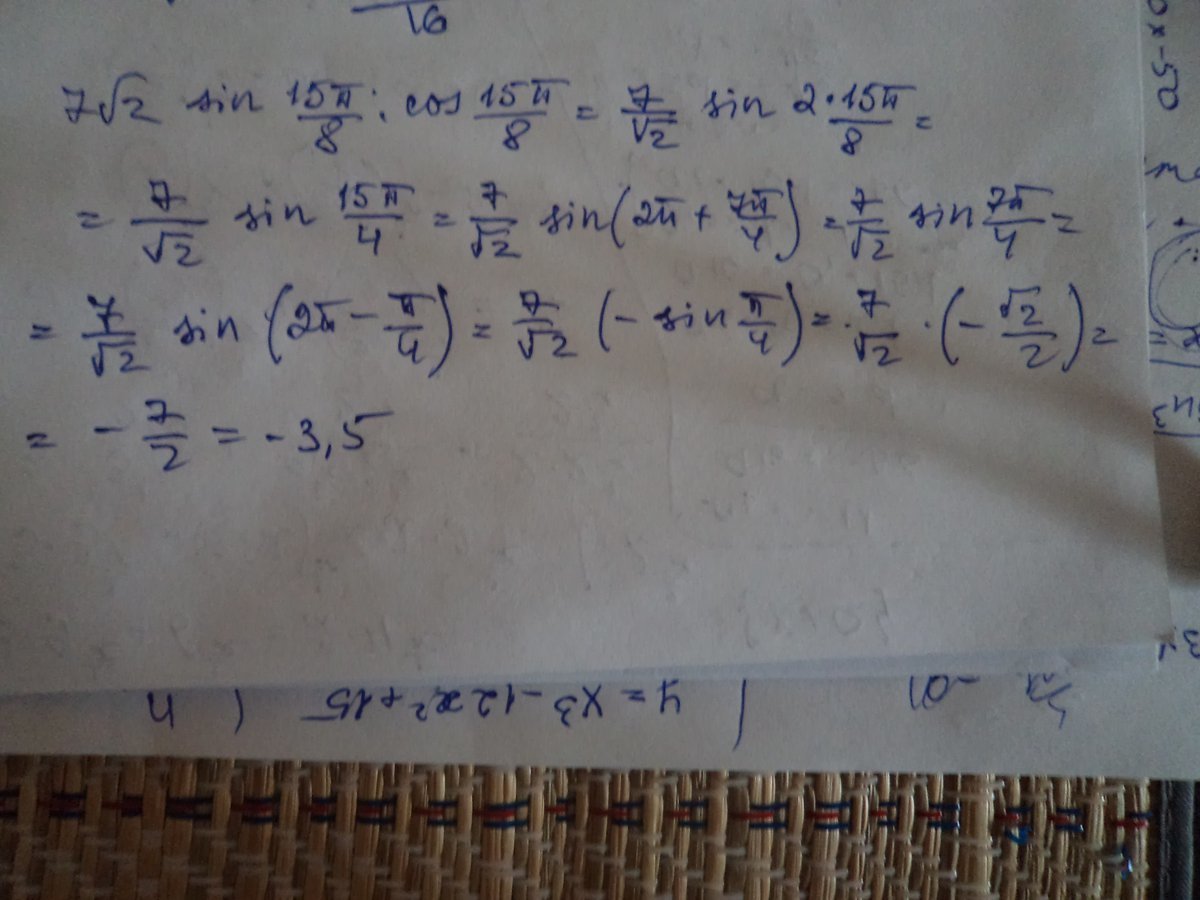 16
7√2 sin 15π/8 · cos 15π/8 = 7/√2 sin 2·15π/8 =
= 7/√2 sin 15π/4 = 7/√2 sin(2π + 7π/4) = 7/√2 sin 7π/4 =
= 7/√2 sin (2π - π/4) = 7/√2 (- sin π/4) = 7/√2 · (- √2/2) =
= - 7/2 = -3,5
y = x3 - 12x² + 15
0x-50